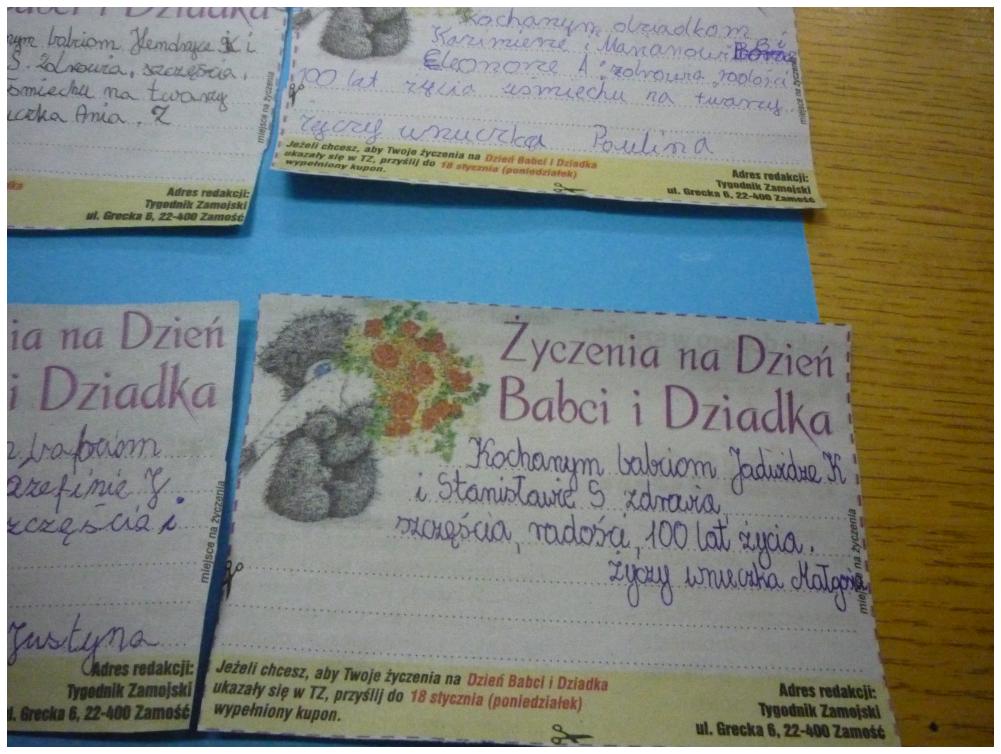 abci i Dziadka
nym babciom Hendryce K i
S. zdrowia, szczęścia,
śmiechu na twarzy
uczka Ania. Z
miejsce na życzenia
Adres redakcji:
Tygodnik Zamojski
ul. Grecka 6, 22-400 Zamość
Kochanym dziadkom
Kazimierze i Marianowi
Eleonorze A zdrowia radości
100 lat życia uśmiechu na twarzy
życzy wnuczka Paulina
miejsce na życzenia
Jeżeli chcesz, aby Twoje życzenia na Dzień Babci i Dziadka
ukazały się w TZ, przyślij do 18 stycznia (poniedziałek)
wypełniony kupon.
Adres redakcji:
Tygodnik Zamojski
ul. Grecka 6, 22-400 Zamość
ia na Dzień
i Dziadka
babciom
azefinie J
zczęścia i
Justyna
miejsce na życzenia
Adres redakcji:
Tygodnik Zamojski
l. Grecka 6, 22-400 Zamość
Życzenia na Dzień
Babci i Dziadka
Kochanym babciom Jadwidze K
i Stanisławie S zdrawia,
szczęścia, radości, 100 lat życia.
życzy wnuczka Małgosia
miejsce na życzenia
Jeżeli chcesz, aby Twoje życzenia na Dzień Babci i Dziadka
ukazały się w TZ, przyślij do 18 stycznia (poniedziałek)
wypełniony kupon.
Adres redakcji:
Tygodnik Zamojski
ul. Grecka 6, 22-400 Zamość